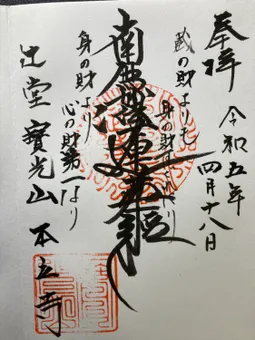 奉拝
令和五年
四月十八日
蔵の財よりも
身の財すぐれ
南無妙法蓮華経
身の財より
心の財第一なり
辻堂 寶光山 本立寺